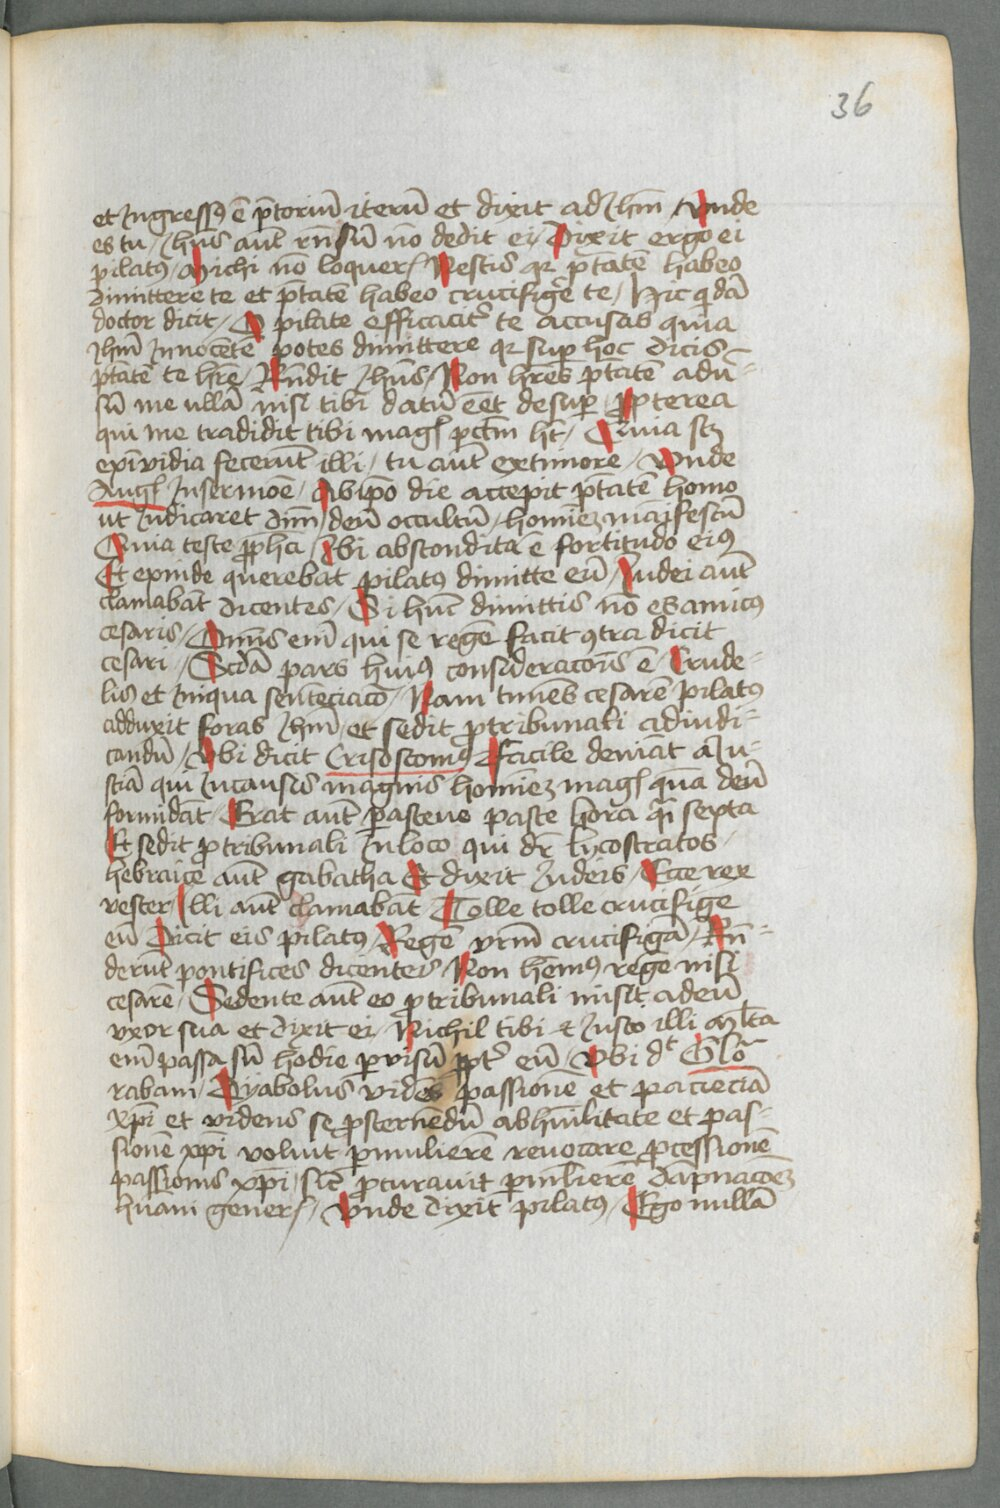 36
et Ingressꝰ ē p̄toriū iterū et dixit ad Ihm̄ / Vnde
es tu / Ihūs aūt rn̄sū nō dedit ei / Dixit ergo ei
pilatꝰ / Michi nō loqueris Nescis qꝛ p̄tatē habeo
dimittere te et p̄tatē habeo crucifigē te / Hic quidā
doctor dicit / O pilate efficacit᷑ te accusas quia
Ihm̄ Innocētē potes dimittere qꝛ suꝑ hoc dicis
p̄tatē te hr̄e / Rn̄dit Ihūs / Non hr̄es p̄tatē adū⸗
sū me ullā nisi tibi datū eēt desuꝑ ꝓpterea
qui me tradidit tibi magis pctm̄ ht̄ / Quia scꝫ
ex īvidia fecerūt illi / tu aūt ex timore / Vnde
Augꝰ In sermoē / Ab ip̄o die accepit p̄tatē homo
ut Iudicaret dm̄ / deū occultū / homiēꝫ māifestū
Quia teste ꝓph̄a / Ibi abscondita ē fortitudo eiꝰ
Et exinde querebat pilatꝰ dimitte eū / Iudei aūt
clamabāt dicentes / Si hūc dimittis nō es amicꝰ
cesaris / Omīs em̄ qui se regē facit ꝯtra dicit
cesari / Scdā pars huiꝰ consideracōis ē / Crude⸗
lis et Iniqua sentēciacō / Nam timēs cesarē / pilatꝰ
adduxit foras Ihm̄ / et sedit ꝓ tribunali ad iudi⸗
candū / Vbi dicit Crisostomꝰ Facile deviāt a Iu⸗
sticiā qui In causis magnis homiēꝫ magis quā deū
formidāt / Erat aūt parasceue pasce hora qͣsi sexta
Et sedit ꝓ tribunali In loco qui dr̄ lycostratos /
hebraice aūt gabatha Et dixit Iudeis / Ecce rex
vester / Illi aūt clamabāt Tolle tolle crucifige
eū Dicit eis pilatꝰ / Regē vrm̄ crucifigā / Rn̄⸗
derūt pontifices dicentes Non hēmꝰ regē nisi
cesarē / Sedente aūt eo ꝓ tribunali misit ad eū
vxor sua et dixit ei / Nichil tibi et Iusto illi ml̄ta
em̄ passa sū hodie per visū ꝓpt᷑ eū / Vbi dt Glō
raban / Dyabolus vidēs passionē et paciēciā
xp̄i et videns se ꝓsternēdū ab hūilitate et pas⸗
sionē xp̄i voluit ꝑ mulierē reuocare ꝓcessionē
passionis xp̄i / sic̄ ꝓcuravit ꝑ ml̄ierē dāpnacōeꝫ
hūani generis / Vnde dixit pilatꝰ / Ego nullā